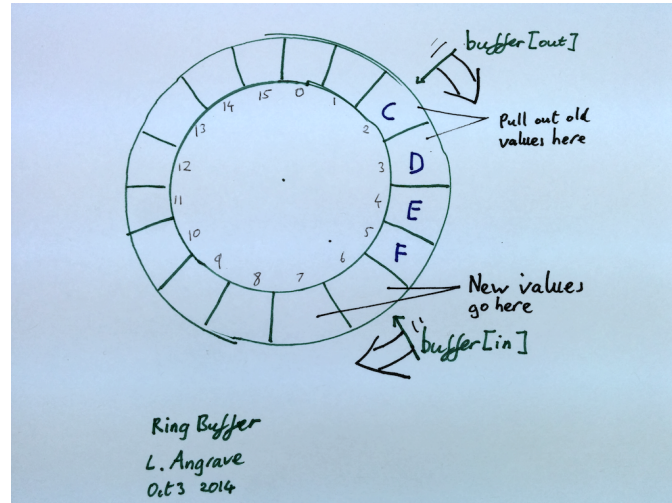 buffer[out]
Pull out old
values here
C
D
E
F
0
1
2
3
4
5
6
7
8
9
10
11
12
13
14
15
New values
go here
buffer[in]
Ring Buffer
L. Angrave
Oct 3 2014